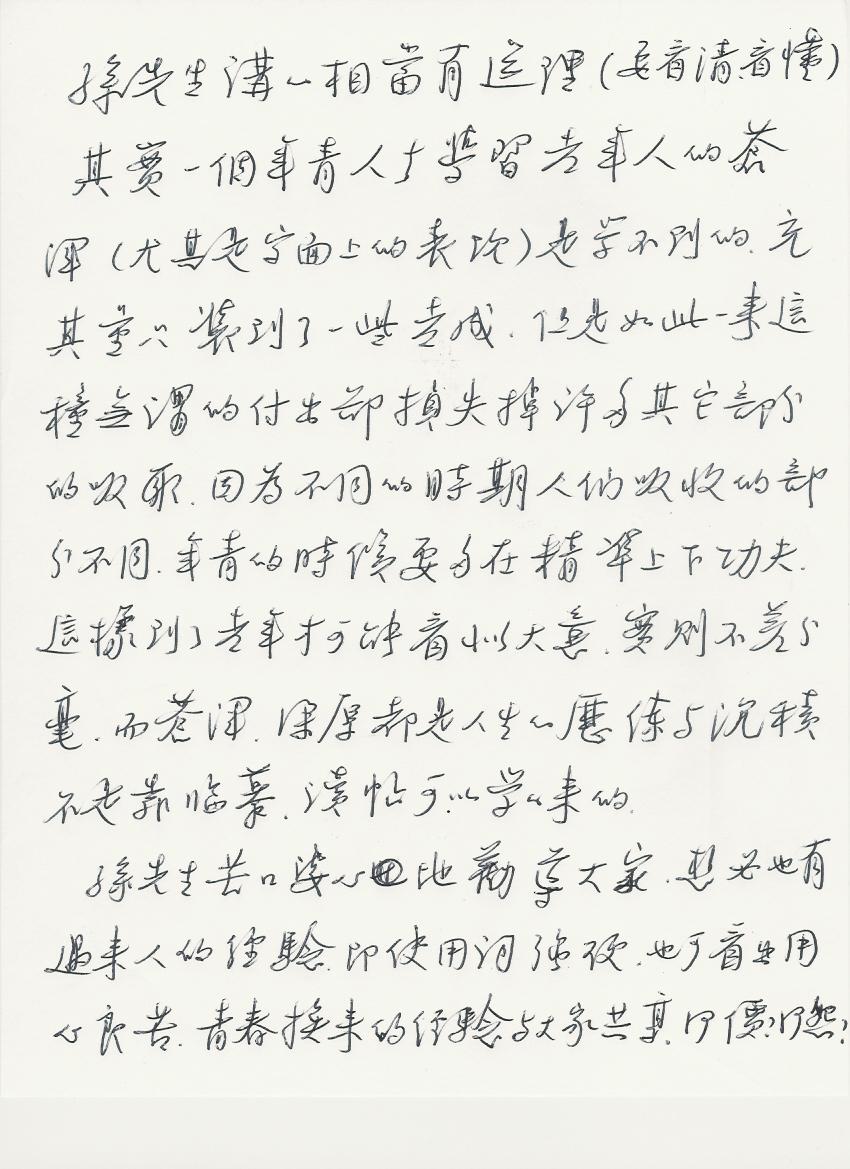 孫先生講的相當有道理(要看清看懂)
其實一個年青人去學習老年人的蒼
渾(尤其是字面上的表現)是学不到的.充
其量只裝到了一些老成.但是如此一来這
種無謂的付出却損失掉許多其它部分
的吸取.因為不同的時期人们吸收的部
分不同.年青的時候要多在精準上下功夫.
這樣到了老年才可能看似大意.實則不差分
毫.而蒼渾.深厚都是人生的歷练与沉積
不是靠临摹.读帖可以学的来的.
孫先生苦口婆心地勸導大家.想必也有
過来人的経驗.即使用词強硬.也可看出用
心良苦.青春换来的経驗与大家共享.何價?何怨?